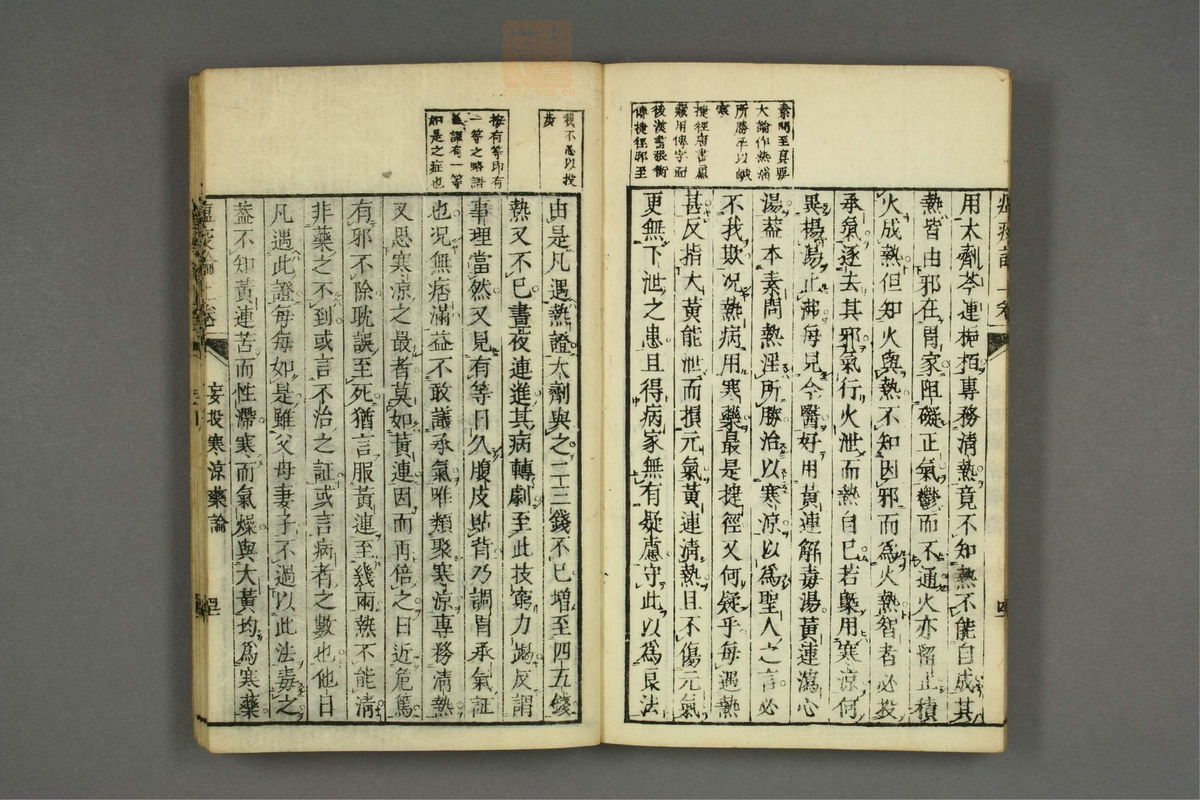 素問至真要
大論作熱淫
所勝平以鹹
寒
捷徑唐書盧
藏用傳字出
後漢書張衡
傳捷徑邪至
用大劑芩連梔栢專務清熱竟不知熱不能自成其
熱皆由邪在胃家阻礙正氣鬱而不通火亦留止積
火成熱但知火與熱不知因邪而為火熱智者必投
承氣逐去其邪氣行火泄而熱自已若槩用寒涼何
異揚湯止沸每見今醫好用黃連解毒湯黃連瀉心
湯葢本素問熱淫所勝治以寒涼以為聖人之言必
不我欺况熱病用寒藥最是捷徑又何疑乎每遇熱
甚反指大黃能泄而損元氣黃連清熱且不傷元氣
更無下泄之患且得病家無有疑慮守此以為良法
我不愚以投
步
按有等即有
一等之略語
葢謂有一等
如是之症也
由是凡遇熱證大劑與之二三錢不已增至四五錢
熱又不已晝夜連進其病轉劇至此技窮力竭反謂
事理當然又見有等日久腹皮貼背乃調胃承氣証
也况無痞滿益不敢議承氣唯類聚寒涼專務清熱
又思寒涼之最者莫如黃連因而再倍之日近危篤
有邪不除耽誤至死猶言服黃連至幾兩熱不能清
非藥之不到或言不治之証或言病者之數也他日
凡遇此證每每如是雖父母妻子不過以此法毒之
葢不知黃連苦而性滯寒而氣燥與大黃均為寒藥
妄投寒涼藥論